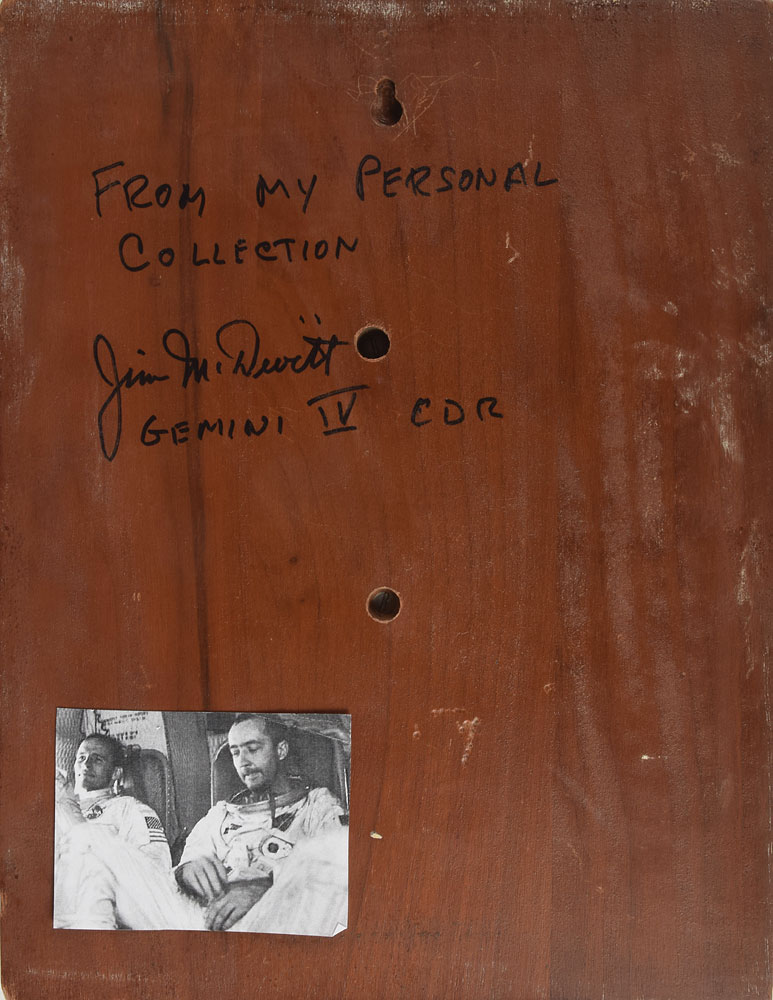 FROM MY PERSONAL
COLLECTION
Jim McDivitt
GEMINI IV CDR